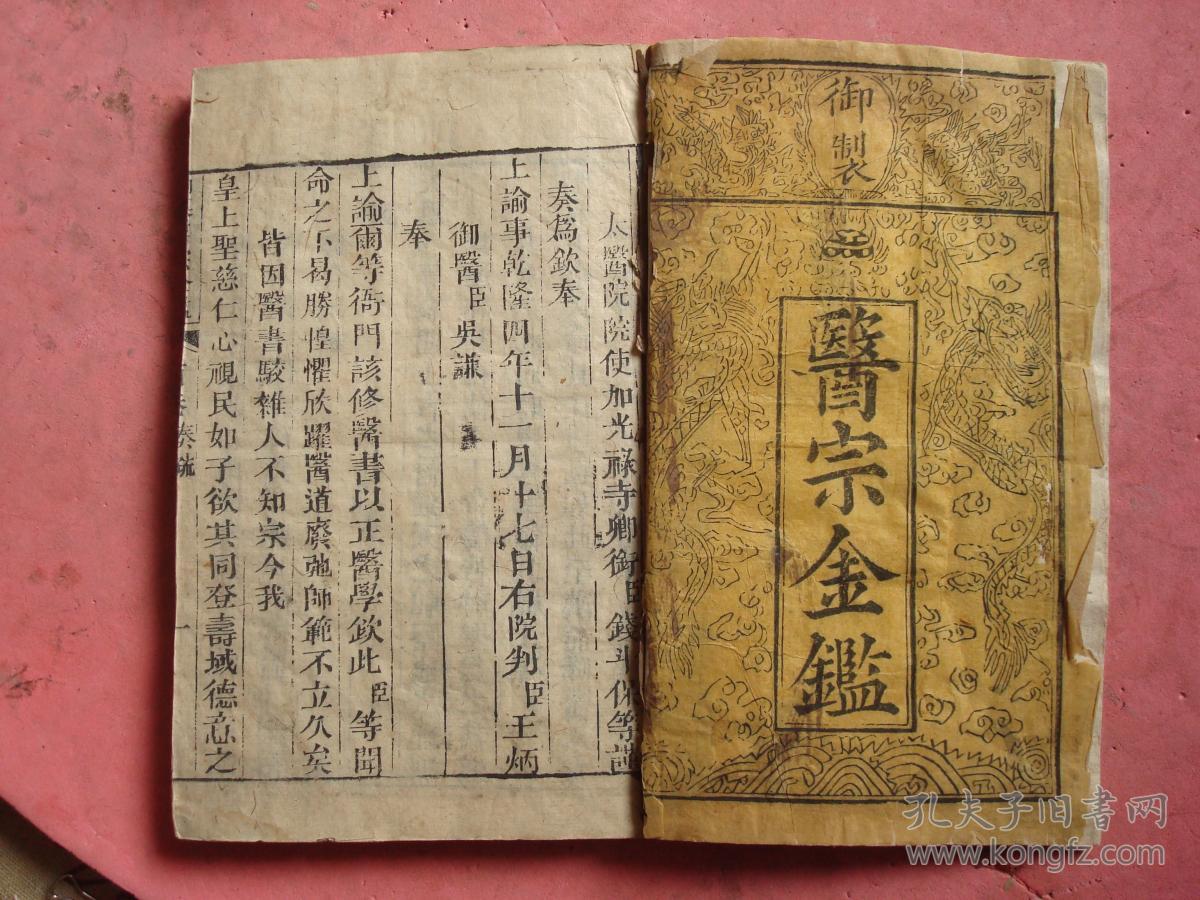 御製
醫宗金鑑
太醫院院使加光祿寺卿銜臣錢斗保等謹
奏為欽奉
上諭事乾隆四年十一月十七日右院判臣王炳
御醫臣吳謙
奉
上諭爾等衙門該修醫書以正醫學欽此臣等聞
命之下曷勝惶懼欣躍醫道廢弛師範不立久矣
皆因醫書駁雜人不知宗今我
皇上聖慈仁心視民如子欲其同登壽域德意之
首卷 奏疏 一
孔夫子旧书网
www.kongfz.com